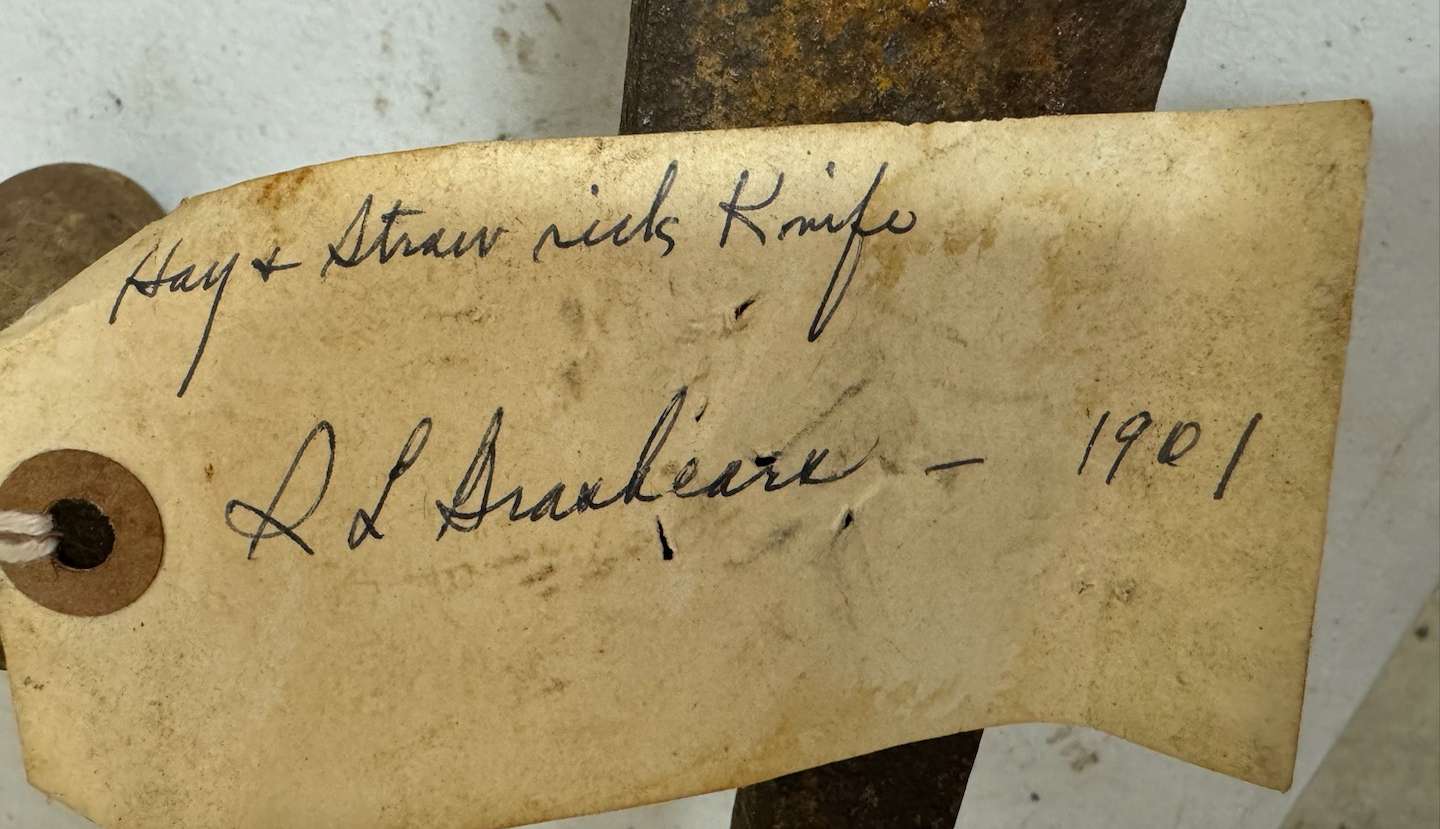 Hay & Straw rick Knife
R L Brashears - 1901